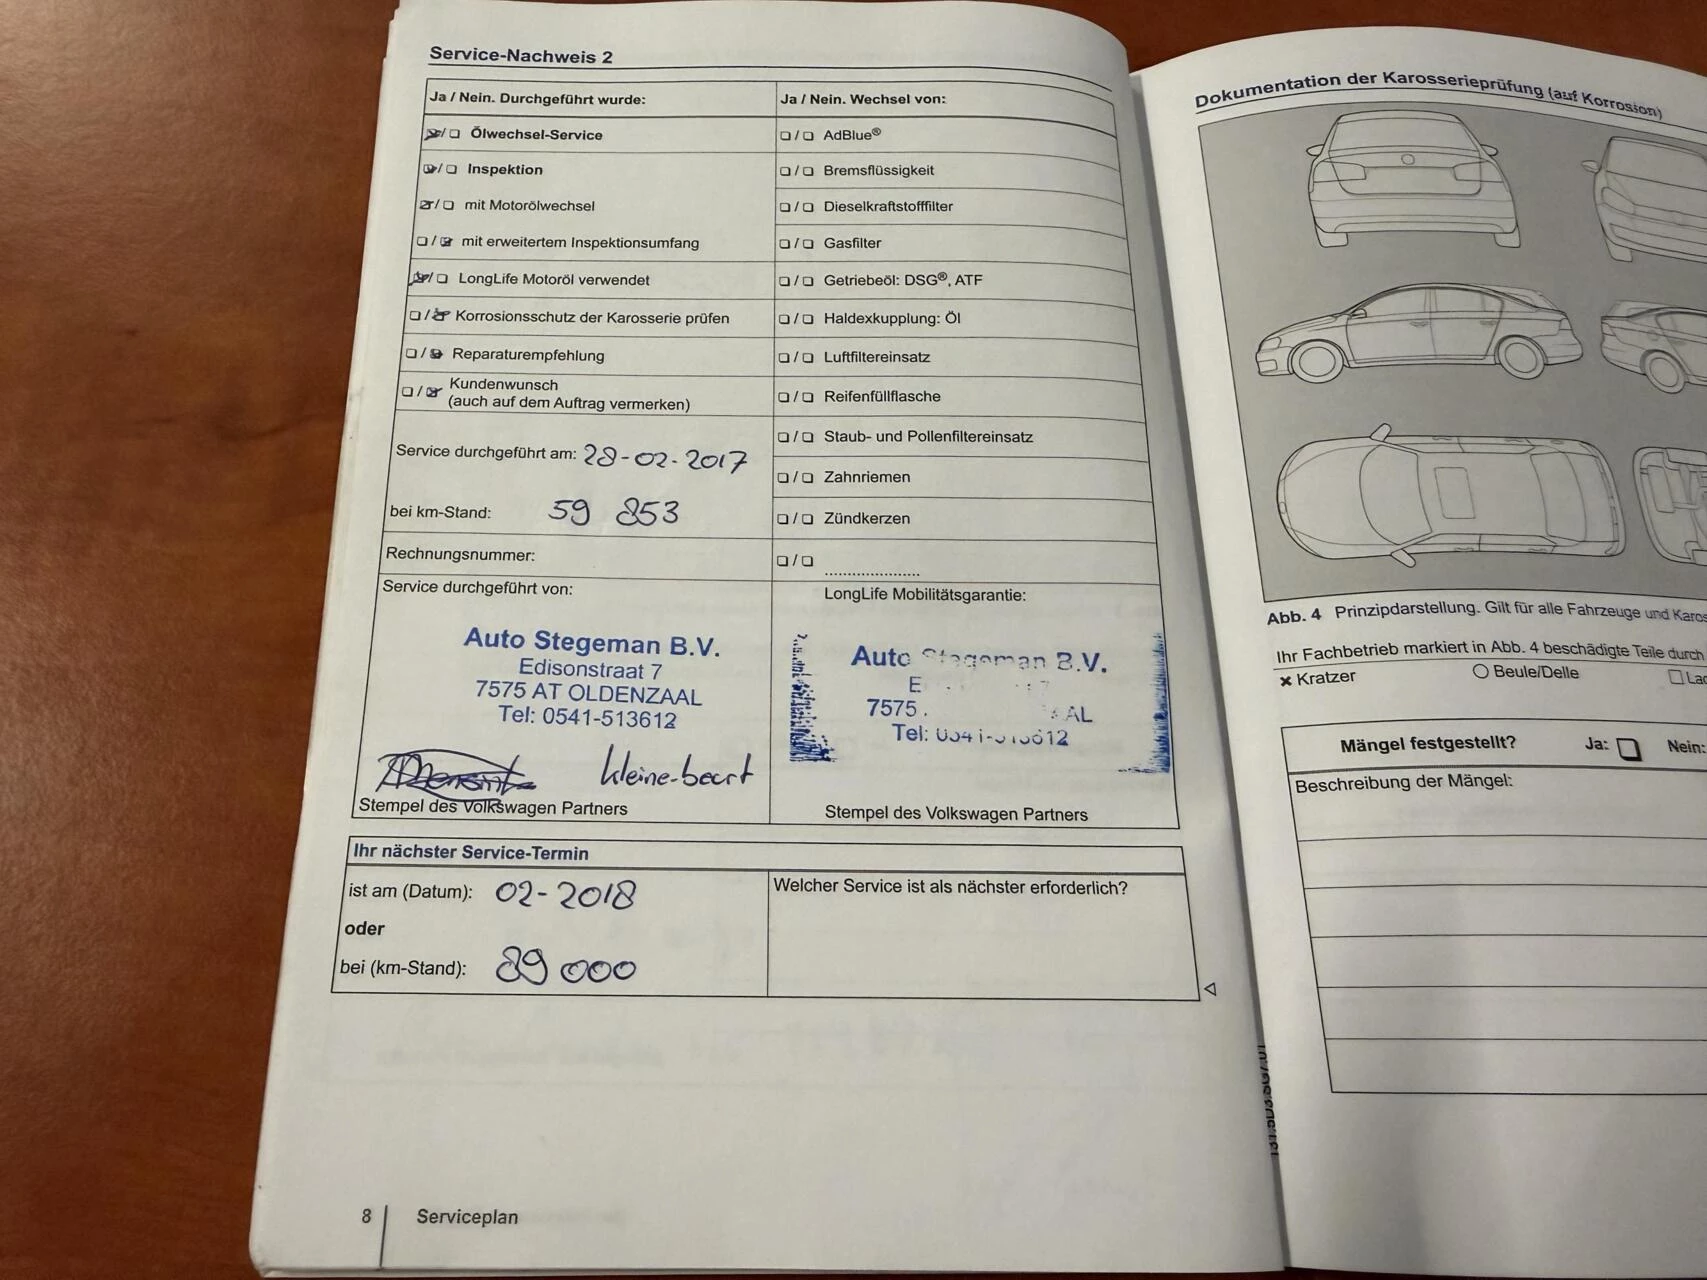 Service-Nachweis 2
Ja / Nein. Durchgeführt wurde:
❏ / ❏ Ölwechsel-Service
❏ / ❏ Inspektion
❏ / ❏ mit Motorölwechsel
❏ / ❏ mit erweitertem Inspektionsumfang
❏ / ❏ LongLife Motoröl verwendet
❏ / ❏ Korrosionsschutz der Karosserie prüfen
❏ / ❏ Reparaturempfehlung
❏ / ❏ Kundenwunsch
(auch auf dem Auftrag vermerken)
Service durchgeführt am: 28-02-2017
bei km-Stand: 59 853
Rechnungsnummer:
Service durchgeführt von:
Auto Stegeman B.V.
Edisonstraat 7
7575 AT OLDENZAAL
Tel: 0541-513612
kleine-beart
Stempel des Volkswagen Partners
Ja / Nein. Wechsel von:
❏ / ❏ AdBlue®
❏ / ❏ Bremsflüssigkeit
❏ / ❏ Dieselkraftstofffilter
❏ / ❏ Gasfilter
❏ / ❏ Getriebeöl: DSG®, ATF
❏ / ❏ Haldexkupplung: Öl
❏ / ❏ Luftfiltereinsatz
❏ / ❏ Reifenfüllflasche
❏ / ❏ Staub- und Pollenfiltereinsatz
❏ / ❏ Zahnriemen
❏ / ❏ Zündkerzen
❏ / ❏ ....................
LongLife Mobilitätsgarantie:
Auto Stegeman B.V.
7575
Tel: 0541-513612
Stempel des Volkswagen Partners
Ihr nächster Service-Termin
ist am (Datum): 02-2018
oder
bei (km-Stand): 89 000
Welcher Service ist als nächster erforderlich?
8 Serviceplan
Dokumentation der Karosserieprüfung (auf Korrosion)
Abb. 4 Prinzipdarstellung. Gilt für alle Fahrzeuge und
Ihr Fachbetrieb markiert in Abb. 4 beschädigte Teile durch
× Kratzer ○ Beule/Delle
Mängel festgestellt? Ja: ❏ Nein:
Beschreibung der Mängel: